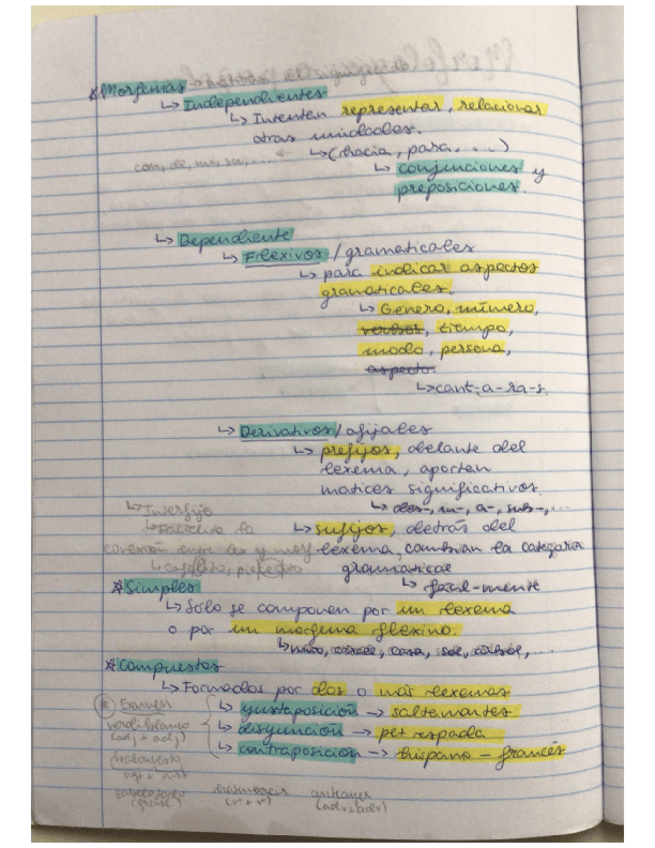 *Morfemas
↳ Independientes
↳ Intenten representar, relacionar
otras unidades.
↳ (hacia, para...)
con, de, mi, su, ... ←
↳ conjunciones y
preposiciones.
↳ Dependiente
↳ Flexivos / gramaticales
↳ para indicar aspectos
gramaticales.
↳ Género, número,
verbos, tiempo,
modo, persona,
aspecto.
↳ cant-a-ra-s
↳ Derivativos / afijales
↳ prefijos, delante del
lexema, aportan
matices significativos.
↳ des-, in-, a-, sub-, ...
↳ Interfijo
↳ sufijos, detrás del
↳ Facilita la
conexión entre lex y morf
lexema, cambian la categoría
gramatical
↳ fácil-mente
*Simples
↳ Sólo se componen por un lexema
o por un morfema flexivo.
↳ casa, sol, árbol, ...
*Compuestas
↳ Formados por dos o más lexemas
Examen
↳ yuxtaposición → saltamontes
verdiblanco
(adj + adj)
↳ disyunción → pez espada
↳ contraposición → hispano-francés
sust + sust
(v + v)
(adv + adv)